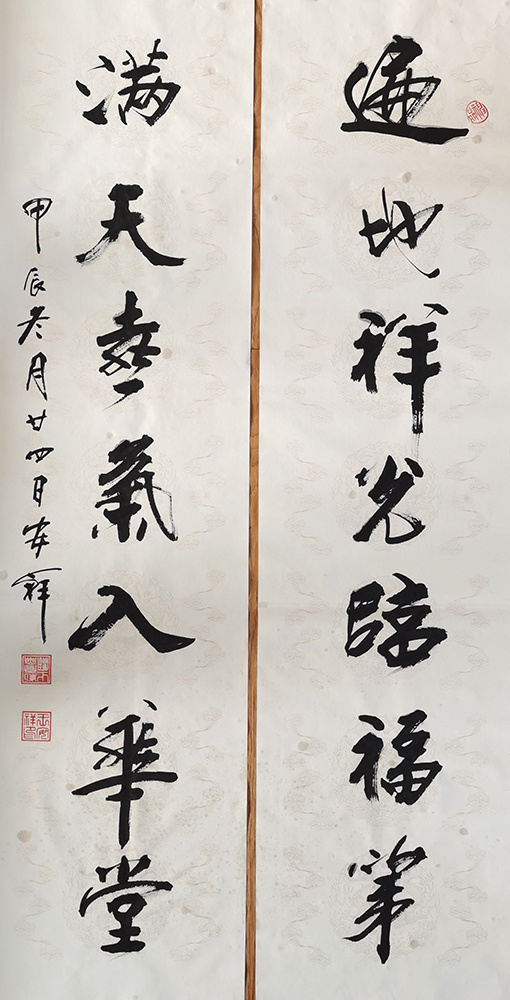 遍地祥光臨福第
满天喜氣入華堂
甲辰冬月廿四日安祥